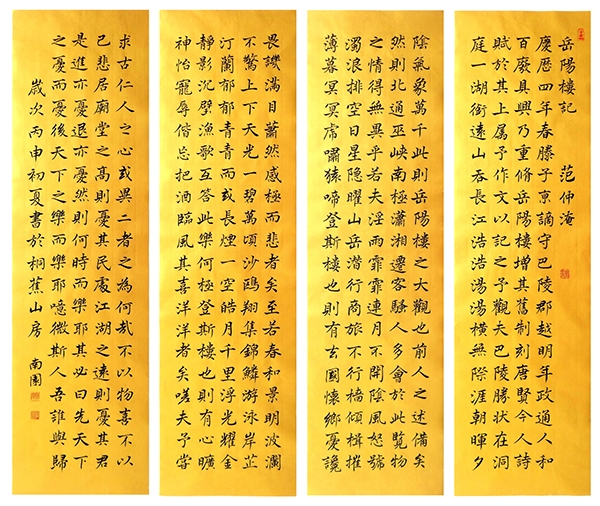 岳陽樓記 范仲淹
慶歷四年春滕子京謫守巴陵郡越明年政通人和
百廢具興乃重修岳陽樓增其舊制刻唐賢今人詩
賦於其上属予作文以記之予觀夫巴陵勝狀在洞
庭一湖銜遠山吞長江浩浩湯湯橫無際涯朝暉夕
陰氣象萬千此則岳陽樓之大觀也前人之述備矣
然則北通巫峽南極瀟湘遷客騷人多會於此覽物
之情得無異乎若夫淫雨霏霏連月不開陰風怒號
濁浪排空日星隱曜山岳潛行商旅不行檣傾楫摧
薄暮冥冥虎嘯猿啼登斯樓也則有去國懷鄉憂讒
畏譏滿目蕭然感極而悲者矣至若春和景明波瀾
不驚上下天光一碧萬頃沙鷗翔集錦鱗游泳岸芷
汀蘭郁郁青青而或長煙一空皓月千里浮光耀金
靜影沉璧漁歌互答此樂何極登斯樓也則有心曠
神怡寵辱偕忘把酒臨風其喜洋洋者矣嗟夫予嘗
求古仁人之心或異二者之為何哉不以物喜不以
己悲居廟堂之高則憂其民處江湖之遠則憂其君
是進亦憂退亦憂然則何時而樂耶其必曰先天下
之憂而憂後天下之樂而樂耶噫微斯人吾誰與歸
歲次丙申初夏書於桐蕉山房 南園